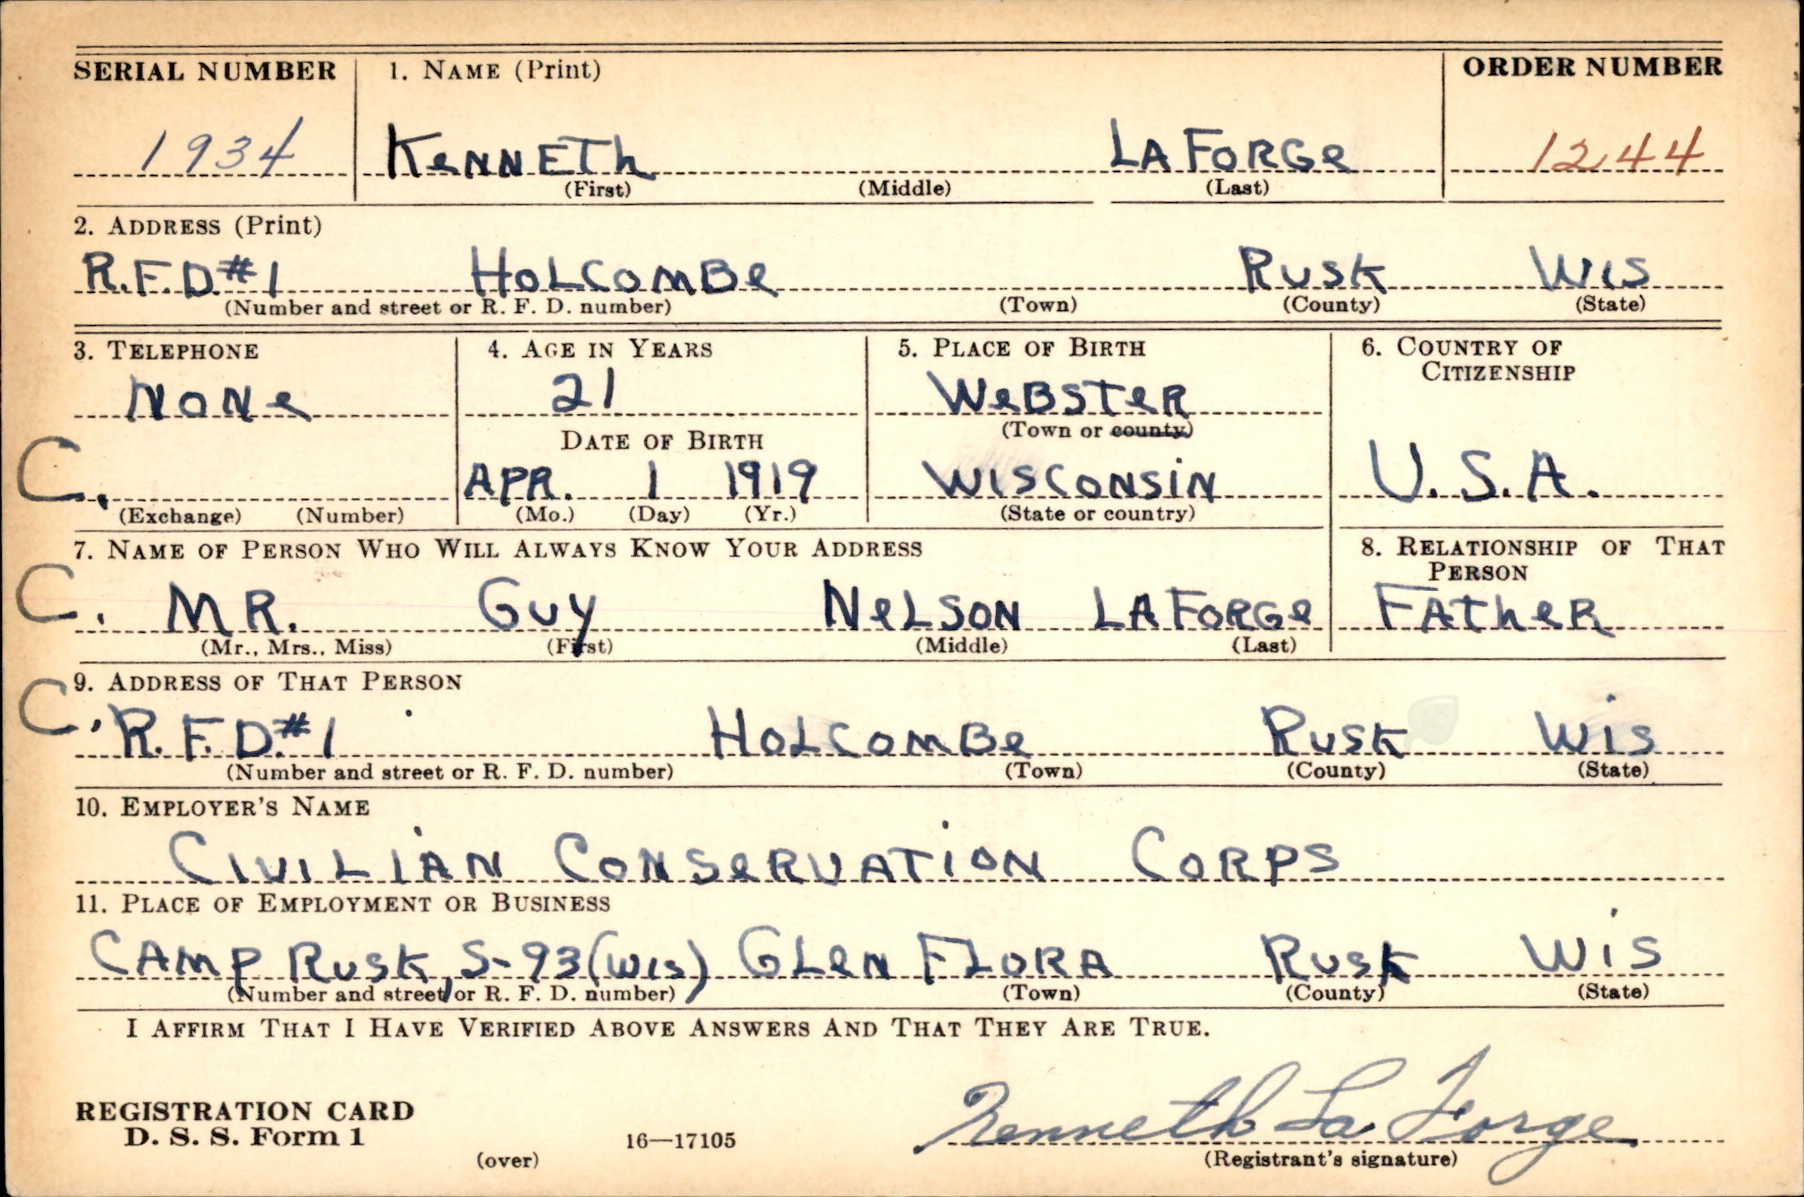 SERIAL NUMBER 1. NAME (Print) ORDER NUMBER
1934 KENNETH LAFORGE 1244
(First) (Middle) (Last)
2. ADDRESS (Print)
R.F.D.#1 HOLCOMBE RUSK WIS
(Number and street or R. F. D. number) (Town) (County) (State)
3. TELEPHONE 4. AGE IN YEARS 5. PLACE OF BIRTH 6. COUNTRY OF
CITIZENSHIP
NONE 21 WEBSTER
DATE OF BIRTH (Town or county)
C. APR. 1 1919 WISCONSIN U.S.A.
(Exchange) (Number) (Mo.) (Day) (Yr.) (State or country)
7. NAME OF PERSON WHO WILL ALWAYS KNOW YOUR ADDRESS 8. RELATIONSHIP OF THAT
PERSON
C. MR. GUY NELSON LAFORGE FATHER
(Mr., Mrs., Miss) (First) (Middle) (Last)
9. ADDRESS OF THAT PERSON
C. R.F.D.#1 HOLCOMBE RUSK WIS
(Number and street or R. F. D. number) (Town) (County) (State)
10. EMPLOYER'S NAME
CIVILIAN CONSERVATION CORPS
11. PLACE OF EMPLOYMENT OR BUSINESS
CAMP RUSK, S-93(WIS) GLEN FLORA RUSK WIS
(Number and street or R. F. D. number) (Town) (County) (State)
I AFFIRM THAT I HAVE VERIFIED ABOVE ANSWERS AND THAT THEY ARE TRUE.
REGISTRATION CARD
D. S. S. Form 1 16—17105 Kenneth La Forge
(over) (Registrant's signature)